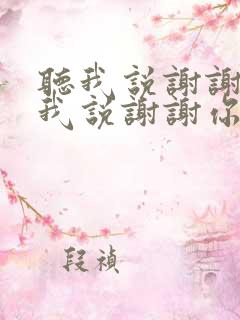 聽我说謝謝
我说謝謝你
段禎